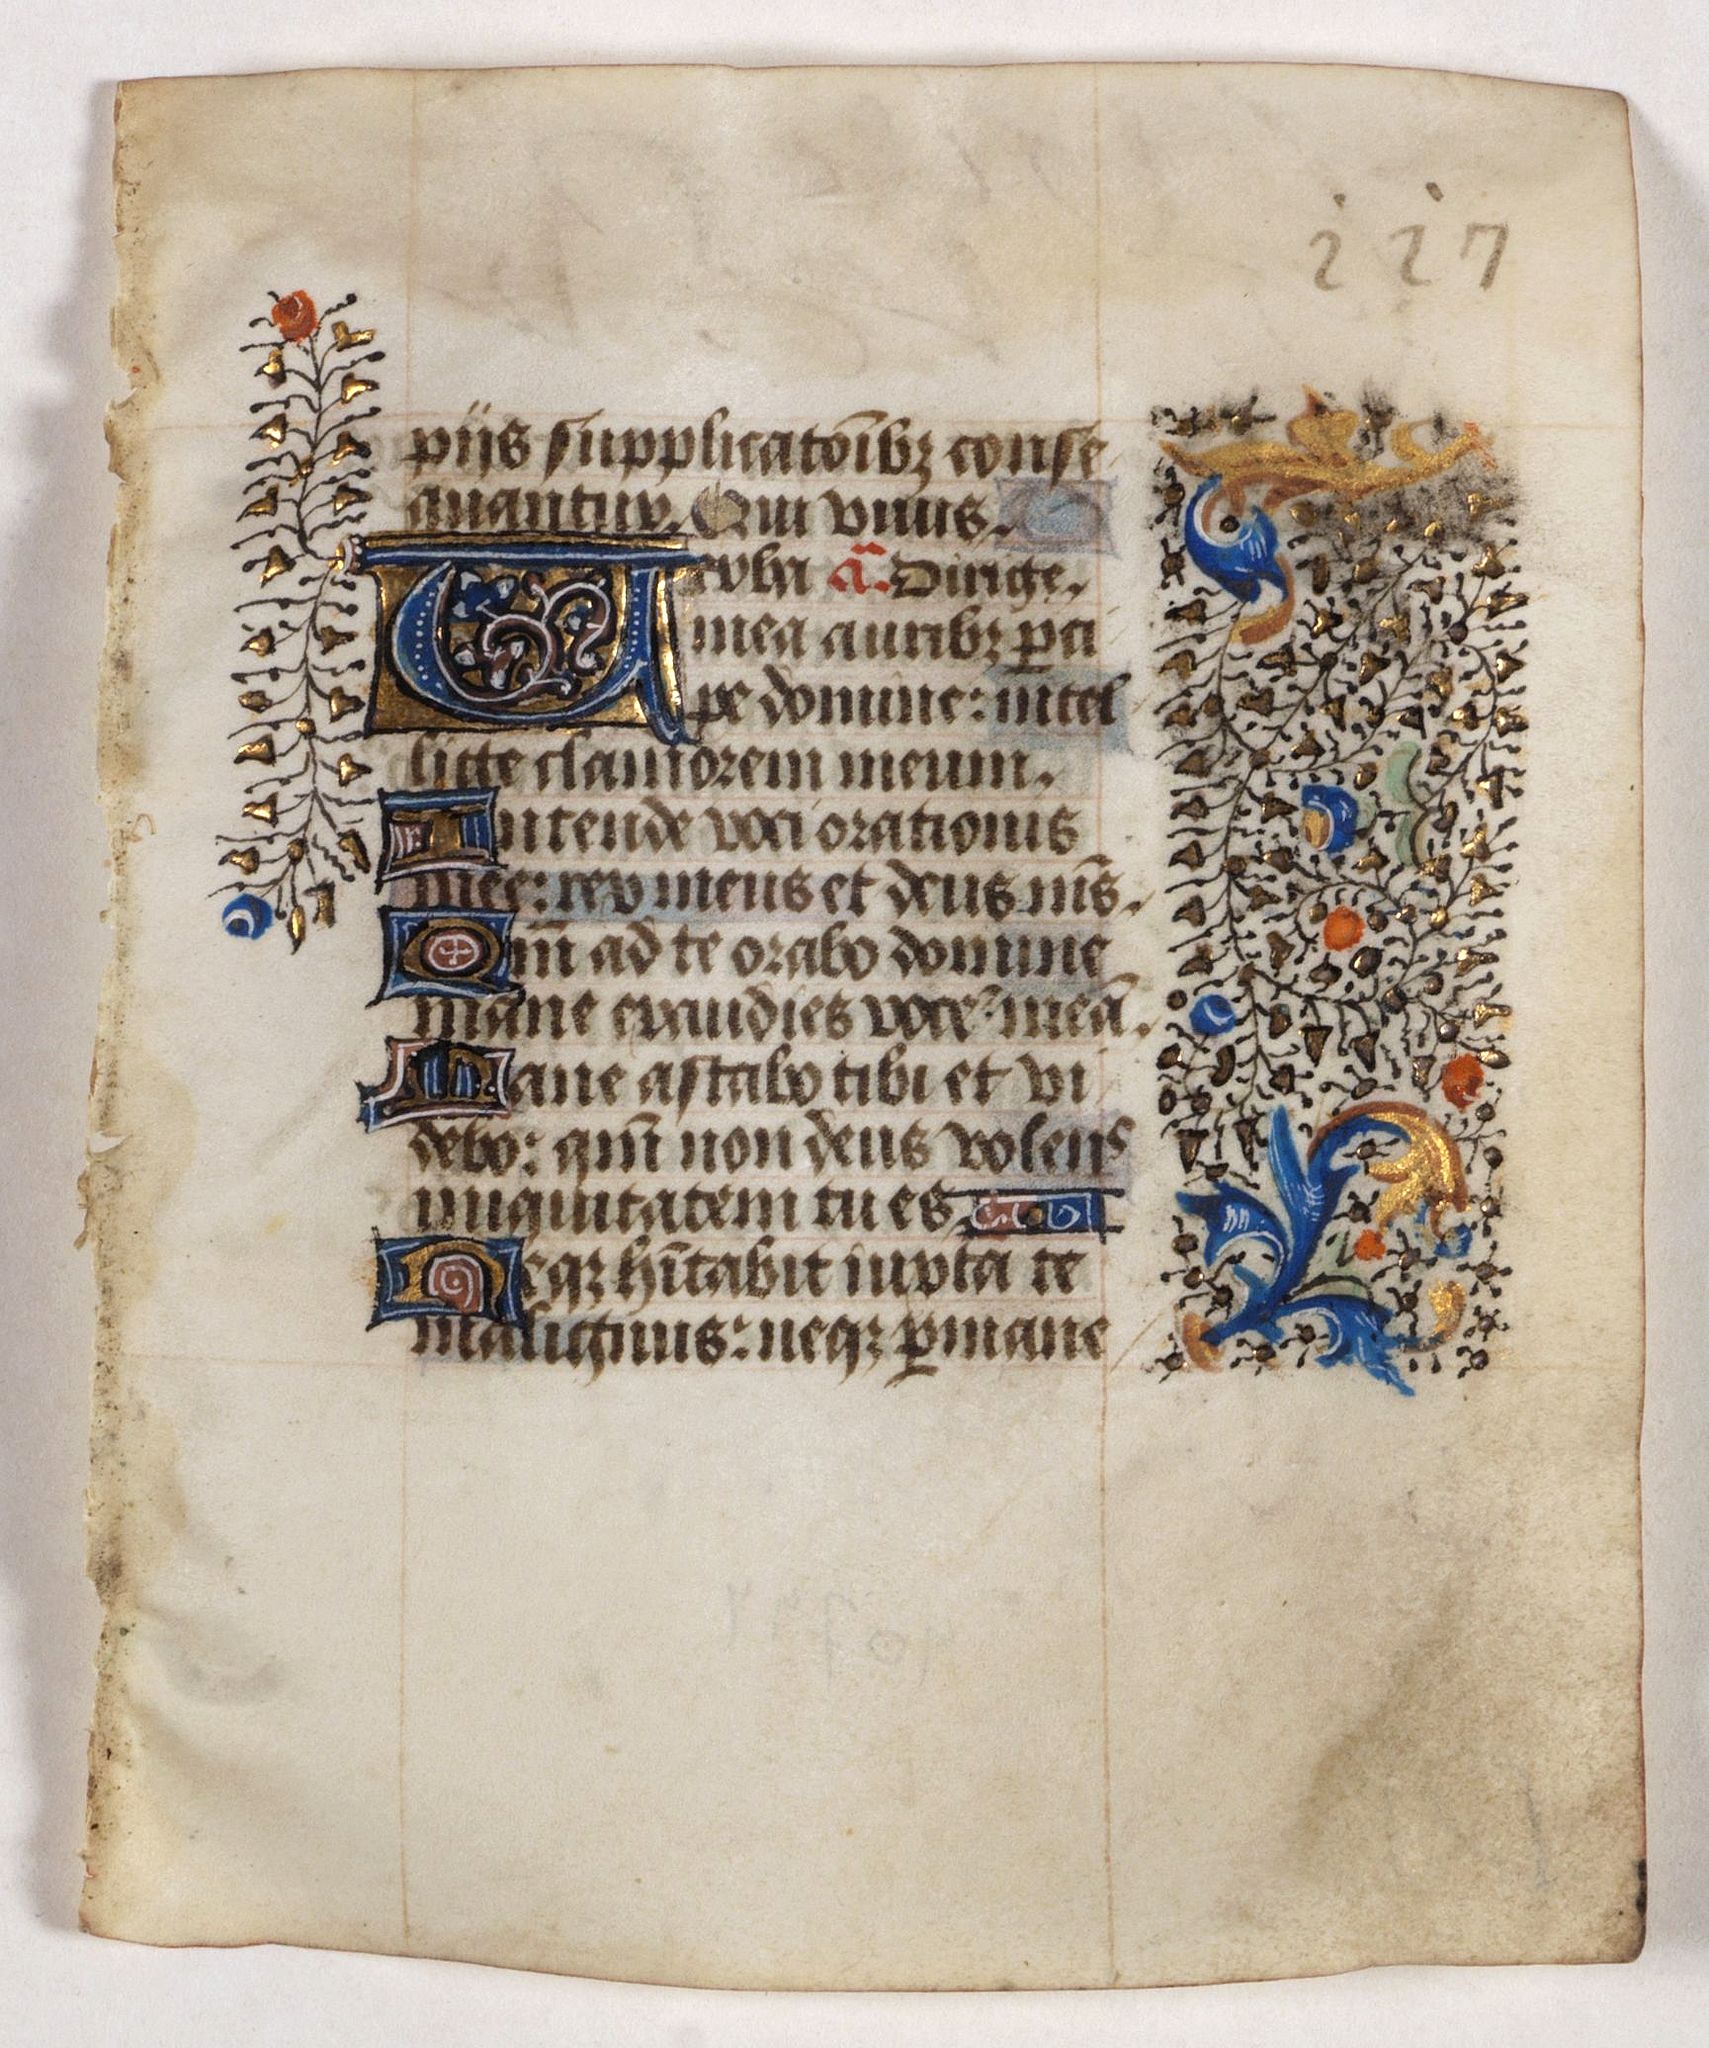 ii7
piis supplicatōībꝫ conse
quantur. Qui viuis.
Uerba añ. Dirige.
mea auribꝫ ꝑci
pe domine: intel
lige clamorem meum.
Intende voci orationis
mee: rex meus et deus mr̄s.
Qm̄ ad te orabo domine
mane exaudies vocē meā.
Mane astabo tibi et vi
debo: qm̄ non deus volens
iniquitatem tu es.
Neqꝫ hītabit iuxta te
malignus: neqꝫ ꝑmane